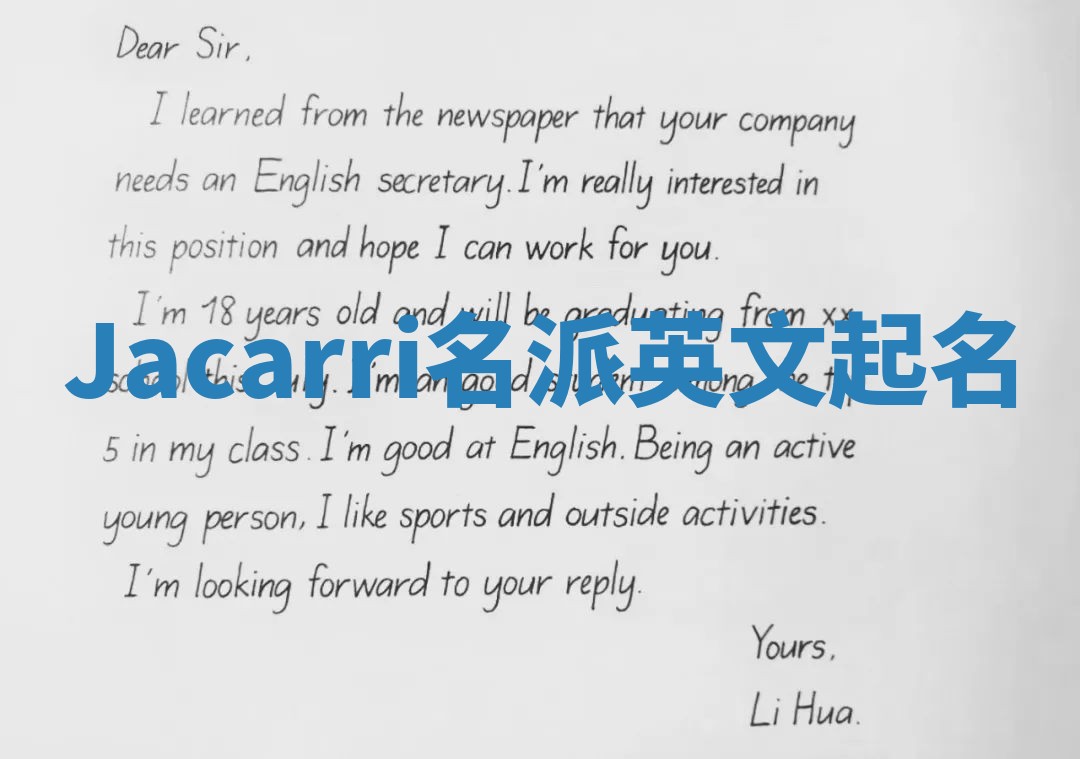 Dear Sir,
I learned from the newspaper that your company
needs an English secretary. I'm really interested in
this position and hope I can work for you.
I'm 18 years old and will be graduating from xx
Jacarri名派英文起名
school this July. I'm an good student among the top
5 in my class. I'm good at English. Being an active
young person, I like sports and outside activities.
I'm looking forward to your reply.
Yours,
Li Hua.